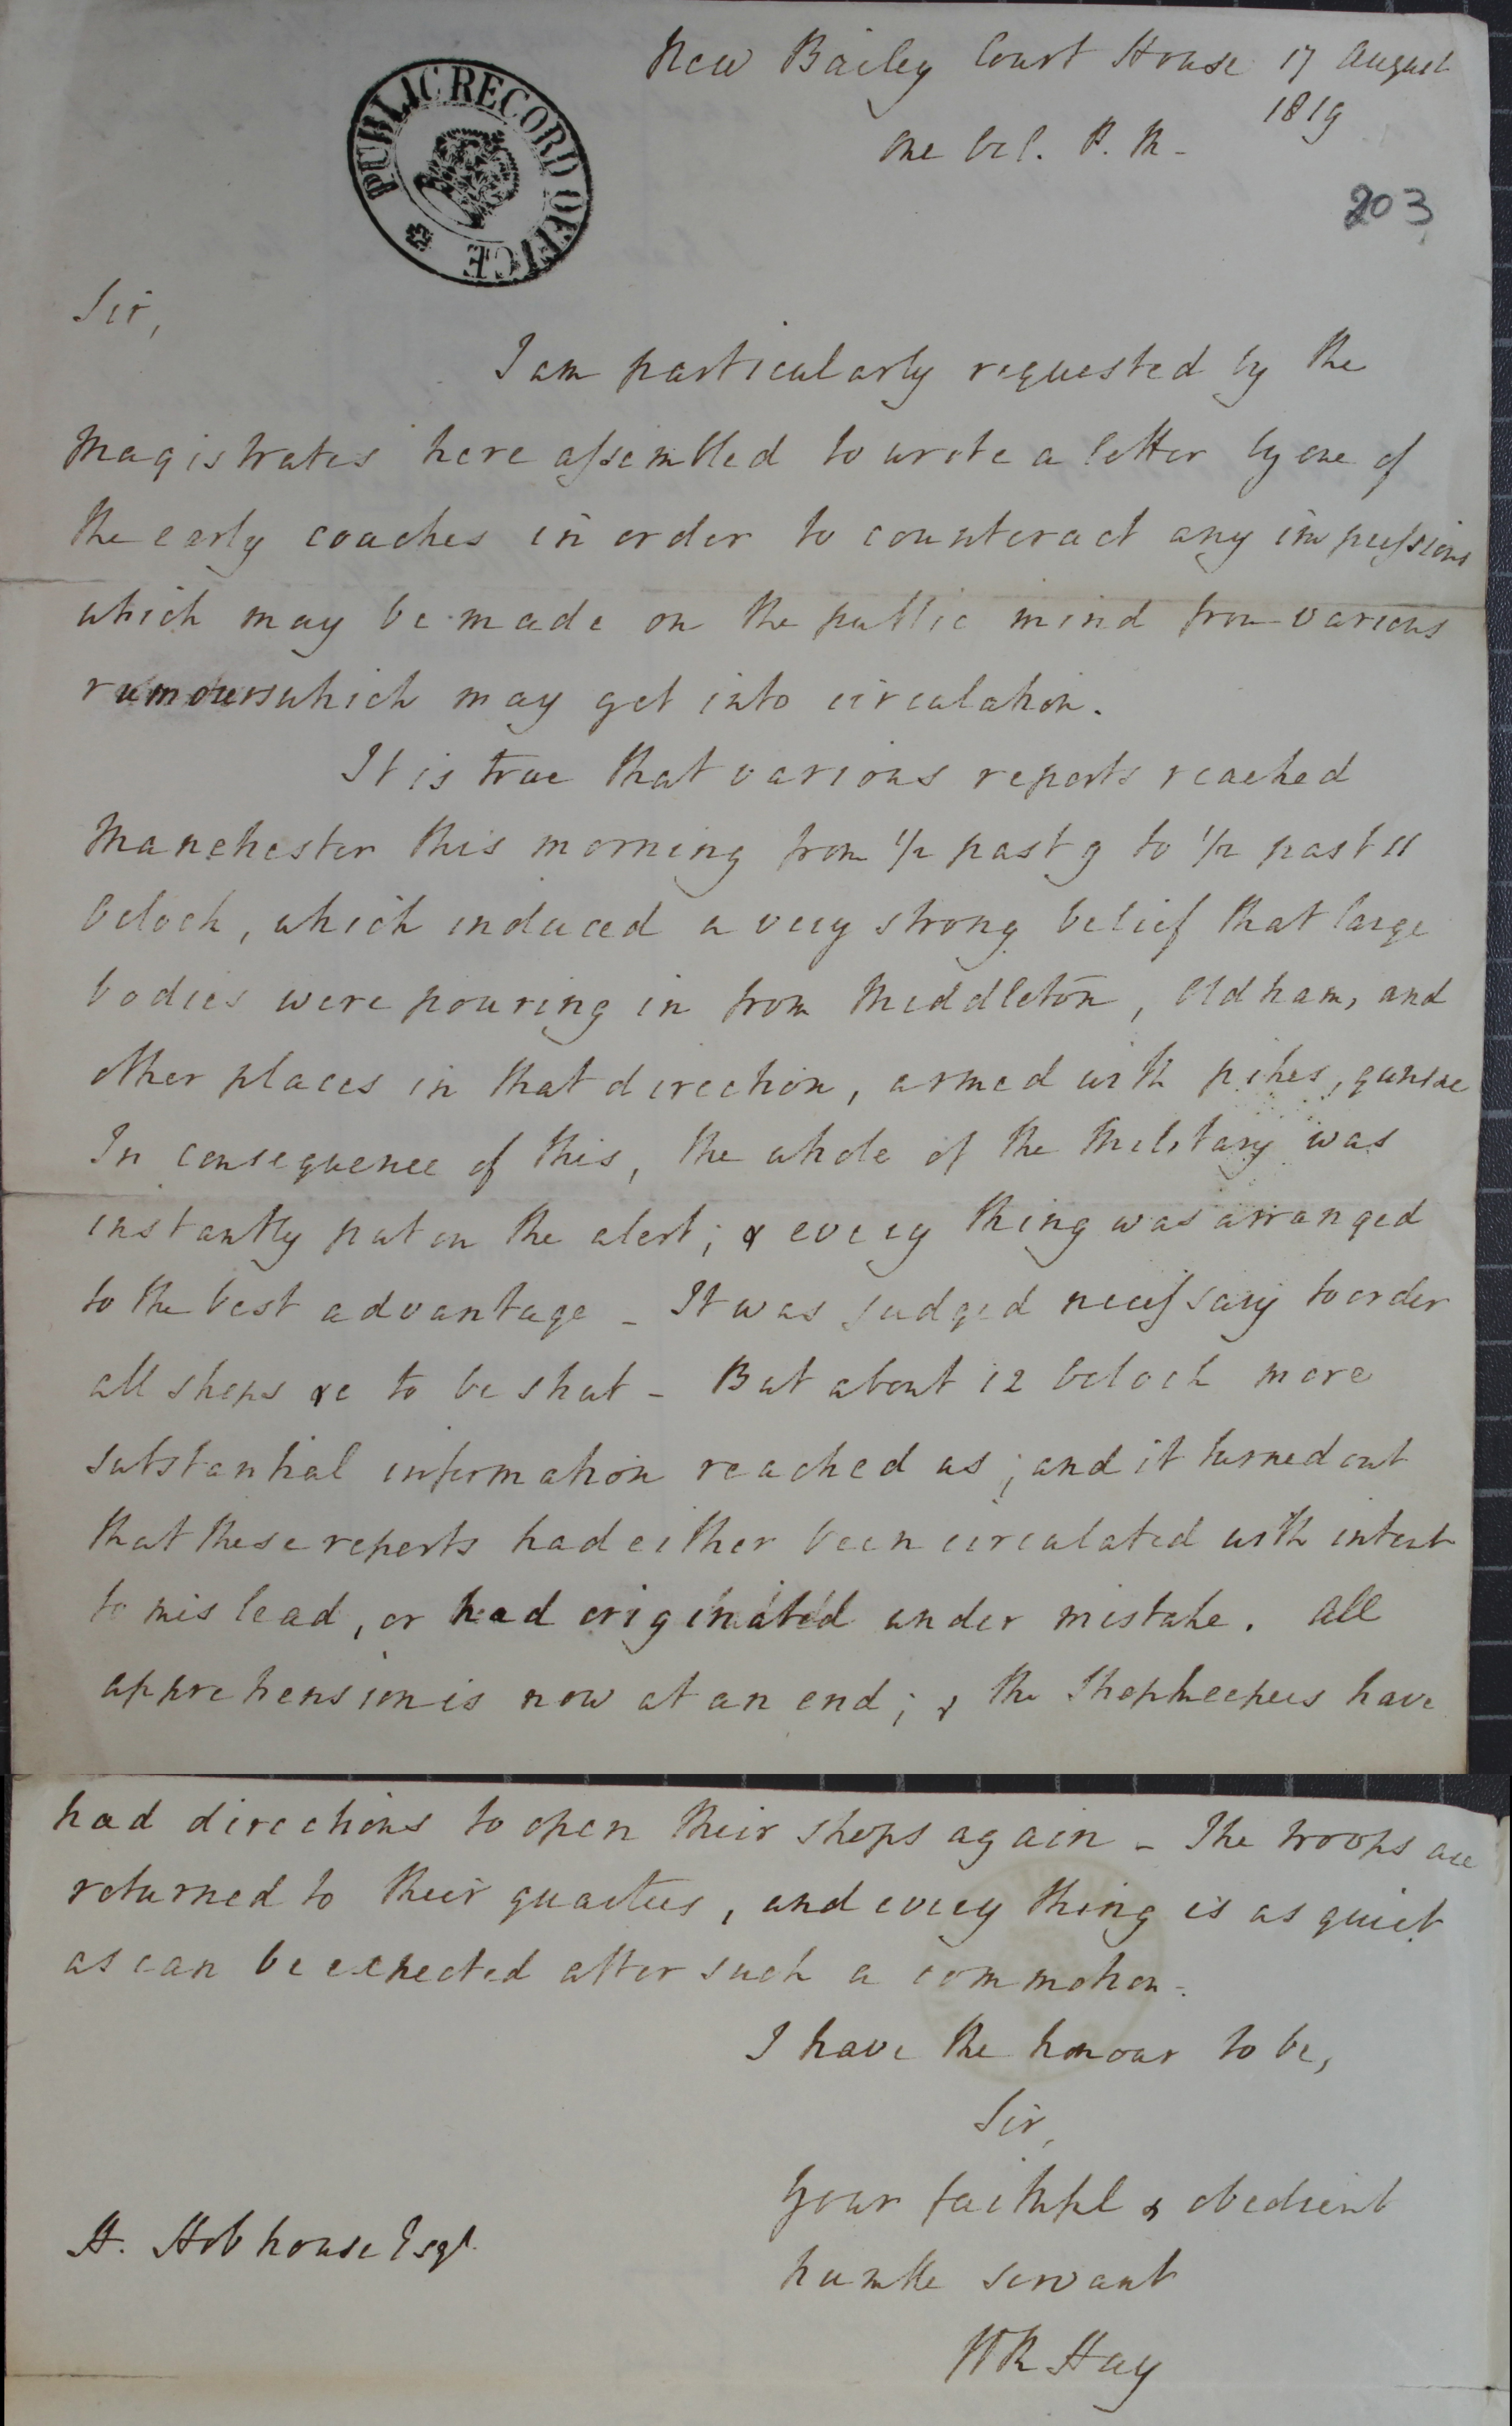 New Bailey Court House 17 August
1819
One OCl. P.M-
PUBLIC RECORD OFFICE
203
Sir,
I am particularly requested by the
Magistrates here assembled to write a letter by one of
the early coaches in order to counteract any impressions
which may be made on the public mind from various
rumours which may get into circulation.
It is true that various reports reached
Manchester this morning from 1/2 past 9 to 1/2 past 11
Oclock, which induced a very strong belief that large
bodies were pouring in from Middleton, Oldham, and
other places in that direction, armed with pikes, guns &c
In consequence of this, the whole of the Military was
instantly put on the alert; & every thing was arranged
to the best advantage - It was judged necessary to order
all shops &c to be shut - But about 12 Oclock more
substantial information reached us; and it turned out
that these reports had either been circulated with intent
to mislead, or had originated under mistake. All
apprehension is now at an end; & the Shopkeepers have
had directions to open their shops again - The troops are
returned to their quarters, and every thing is as quiet
as can be expected after such a commotion -
I have the honour to be,
Sir,
Your faithful & obedient
humble servant
WR Hay
H. Hobhouse Esqr.